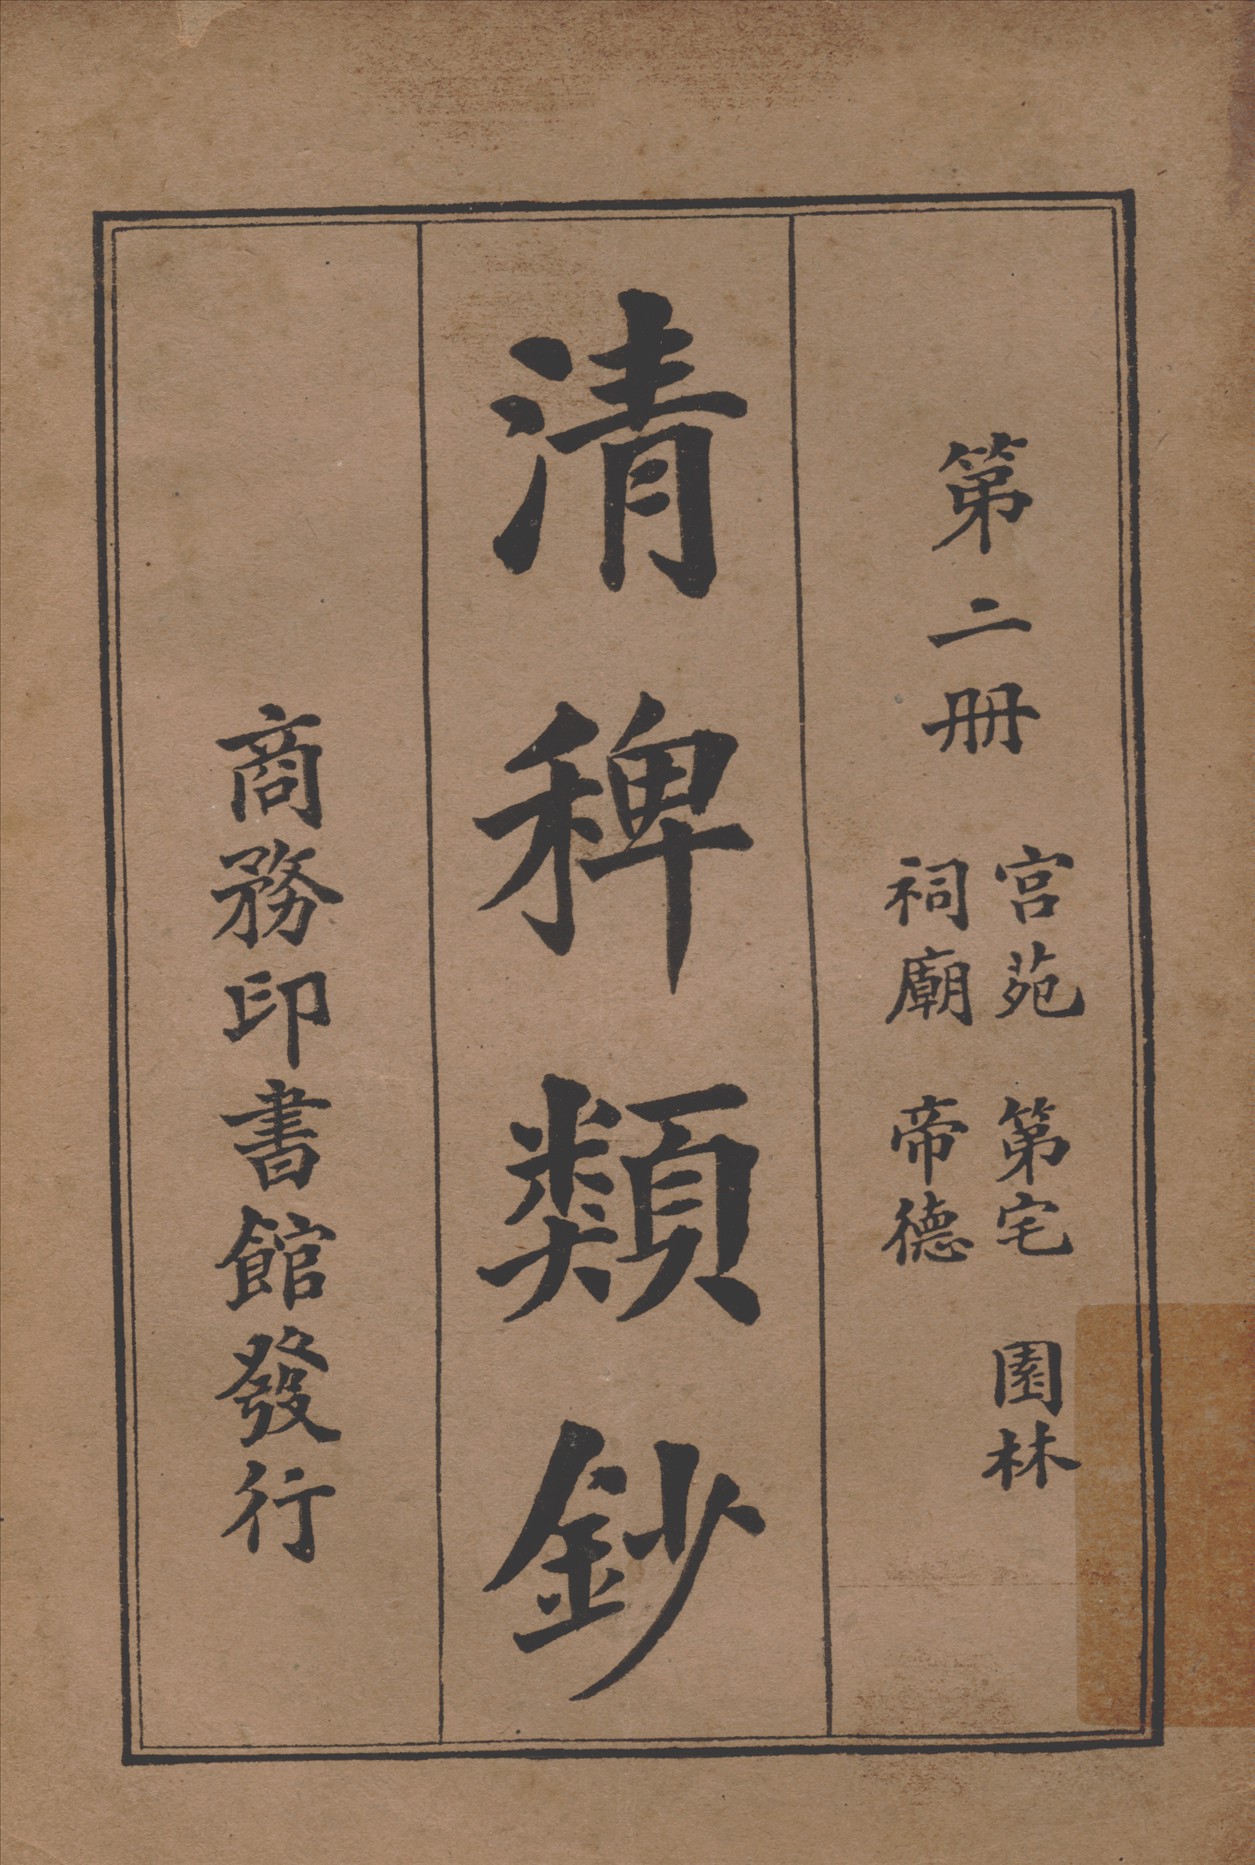 第二册
宫苑 第宅 園林
祠廟 帝德
清稗類鈔
商務印書館發行